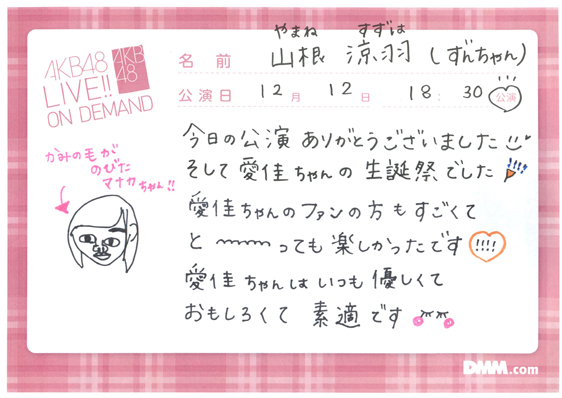 AKB48
LIVE!!
ON DEMAND
AKB
48
やまね すずは
名前 山根 涼羽 (ずんちゃん)
公演日 12月 12日 18:30 公演
今日の公演 ありがとうございました
そして 愛佳ちゃんの 生誕祭でした
愛佳ちゃんのファンの方もすごくて
と〰〰っても 楽しかったです !!!!
愛佳ちゃんはいつも優しくて
おもしろくて 素適です
かみの毛が
のびた
マナカちゃん!!
DMM.com